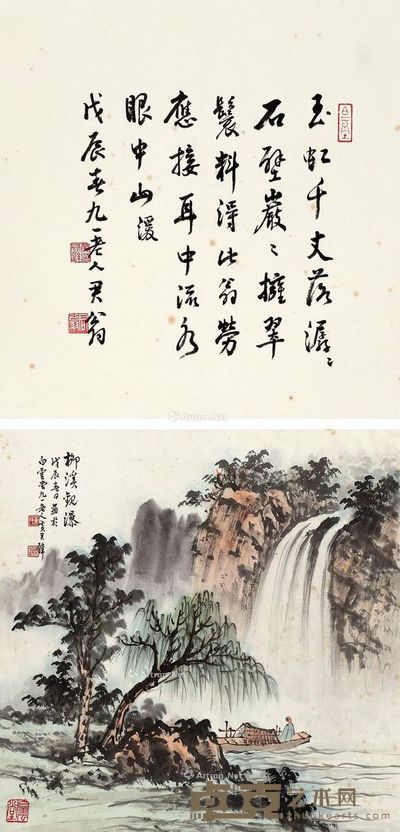 玉虹千丈落潺ゝ
石壁巖ゝ擁翠
鬟料得此翁勞
應接耳中流水
眼中山
戊辰春九一老人君翁
Artron.Net
柳溪觀瀑
戊辰春日畫於
白雲堂九一老人黃君璧
Artron.Net
卓克艺术网
http://www.zhuokearts.com